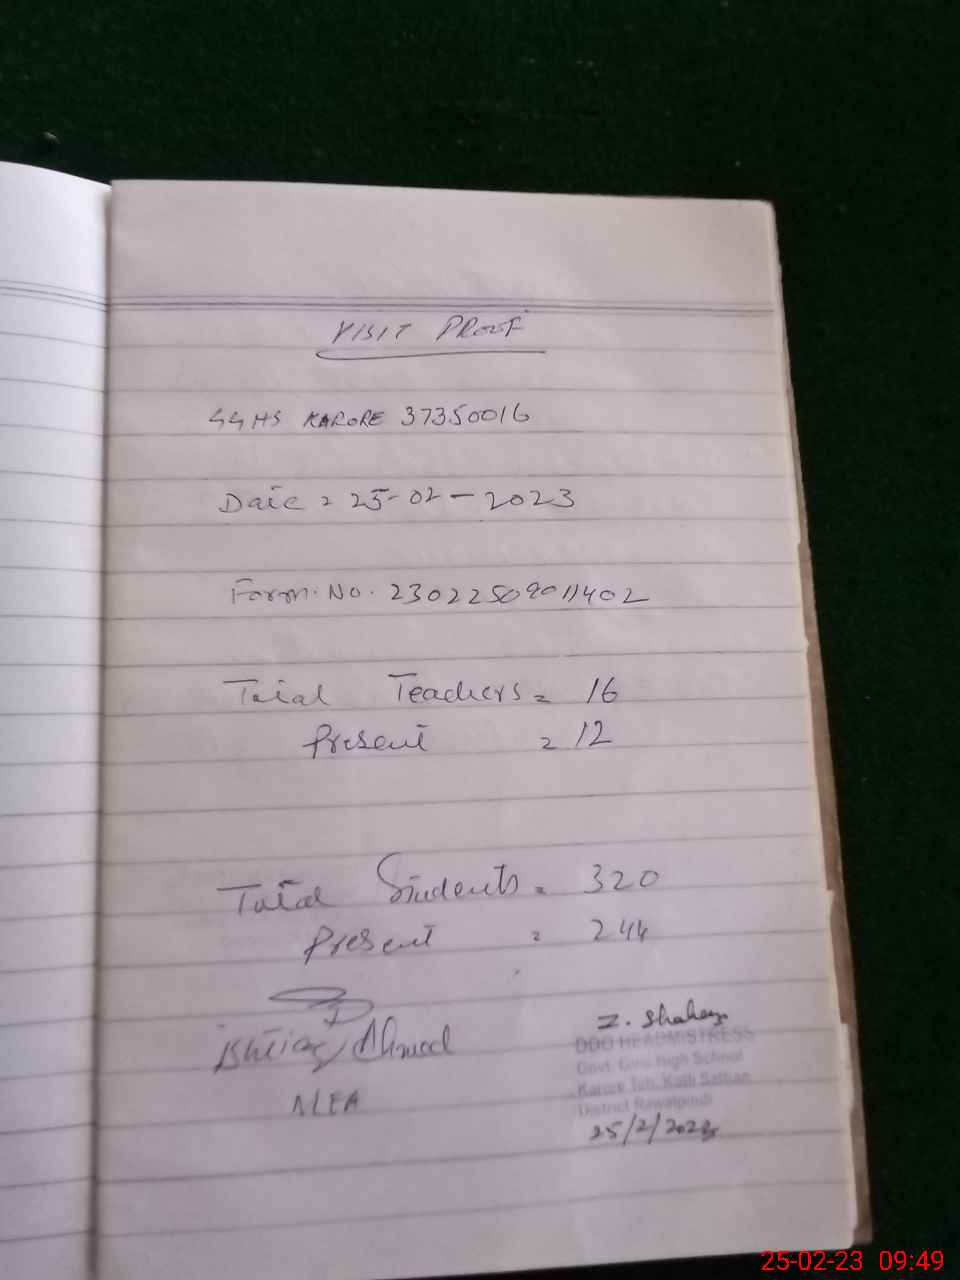 VISIT PROOF
GGHS KARORE 37350016
Date = 25-02-2023
Form.No. 23022509011402
Total Teachers = 16
Present = 12
Total Students = 320
Present = 244
Ishtiaq Ahmed
MEA
Z. Shaheen
DDO HEADMISTRESS
Govt. Girls High School
Karore Teh. Kotli Sattian
District Rawalpindi
25/2/2023
25-02-23 09:49